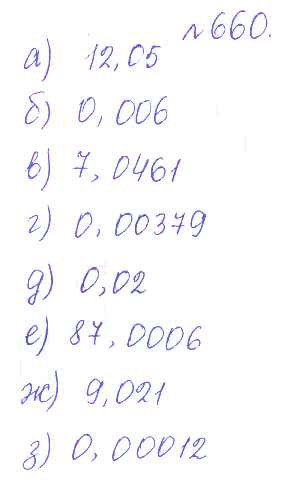 №660.
а) 12,05
б) 0,006
в) 7,0461
г) 0,00379
д) 0,02
е) 87,0006
ж) 9,021
з) 0,00012